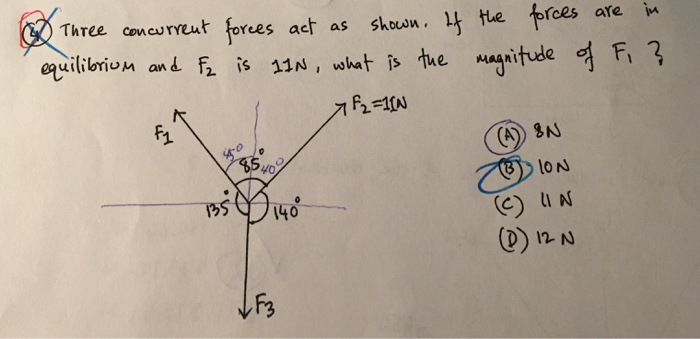 4 Three concurrent forces act as shown. If the forces are in
equilibrium and F2 is 11N, what is the magnitude of F1 ?
F1
F2=11N
45°
85°
40°
135°
140°
F3
(A) 8N
(B) 10N
(C) 11 N
(D) 12 N